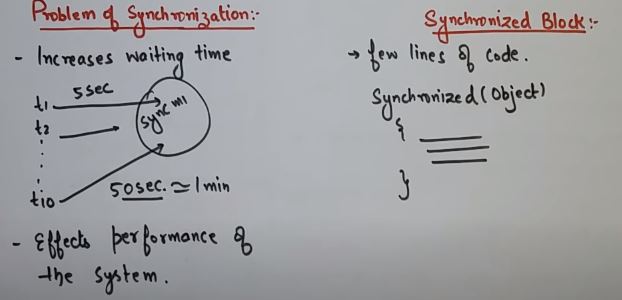 Problem of Synchronization:-
- Increases waiting time
5sec
t1
t2
sync m1
t10
50sec. ≃ 1 min
- Effects performance of
the system.
Synchronized Block:-
→ few lines of code.
Synchronized (Object)
{
}